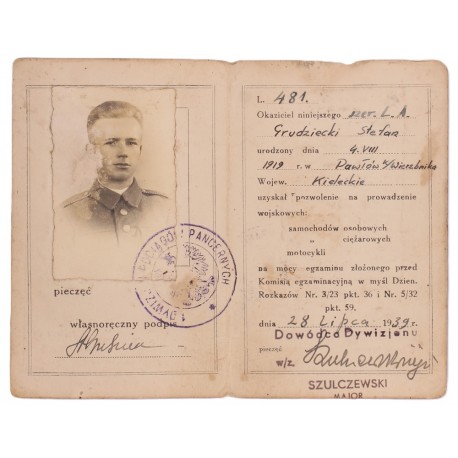 pieczęć
własnoręczny podpis
POCIĄGÓW PANCERNYCH
1 DYWIZJ
L. 481.
Okaziciel niniejszego szer. L. A.
Grudziecki Stefan
urodzony dnia 4. VIII
1919 r. w Pawłów n/Wierzbnika
Wojew. Kieleckie
uzyskał pozwolenie na prowadzenie
wojskowych:
samochodów osobowych
„ ciężarowych
motocykli
na mocy egzaminu złożonego przed
Komisją egzaminacyjną w myśl Dzien.
Rozkazów Nr. 3/23 pkt. 36 i Nr. 5/32
pkt. 59.
dnia 28 Lipca 1939 r.
Dowódca Dywizjonu
pieczęć
w/z
SZULCZEWSKI
MAJOR